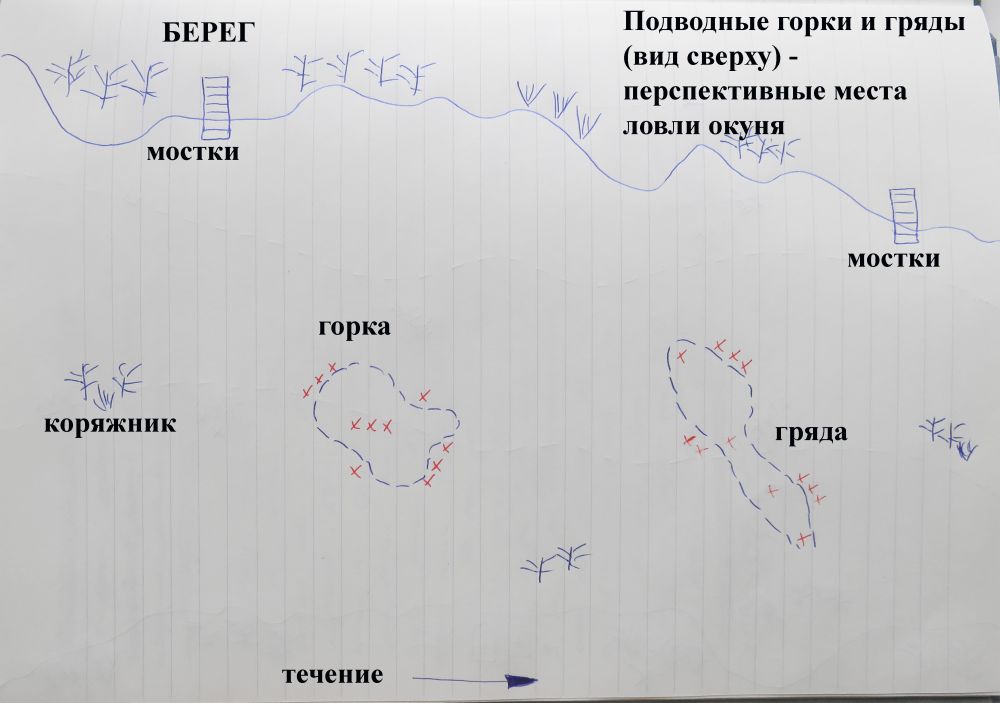 БЕРЕГ
Подводные горки и гряды
(вид сверху) -
перспективные места
ловли окуня
мостки
мостки
горка
коряжник
гряда
течение